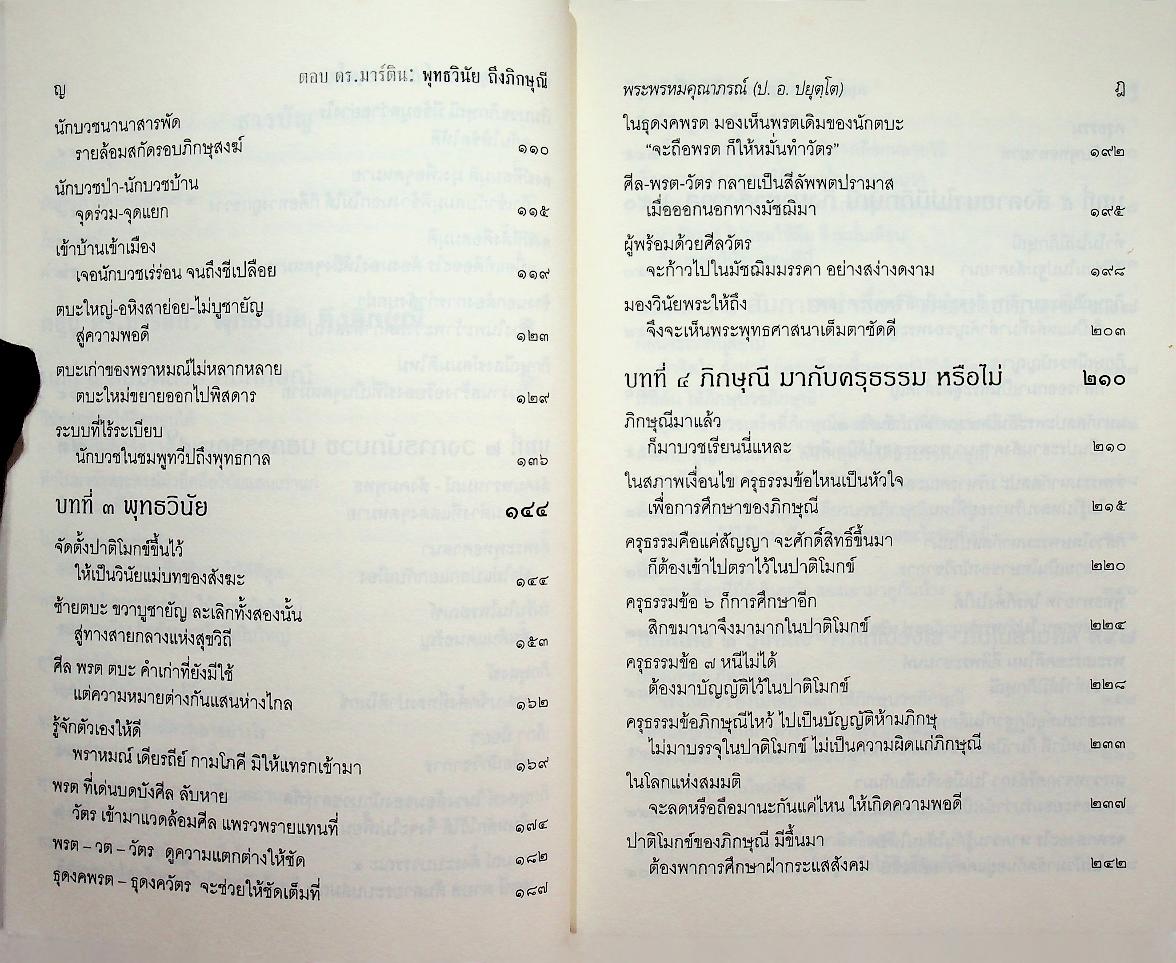 ญ ตอบ ดร.มาร์ติน: พุทธวินัย ถึงภิกษุณี
นักบวชนานาสารพัด
รายล้อมสกัดรอบภิกษุสงฆ์ ๑๑๐
นักบวชป่า-นักบวชบ้าน
จุดร่วม-จุดแยก ๑๑๕
เข้าบ้านเข้าเมือง
เจอนักบวชเร่ร่อน จนถึงชีเปลือย ๑๑๙
ตบะใหญ่-อหิงสาย่อย-ไม่บูชายัญ
สู่ความพอดี ๑๒๓
ตบะเก่าของพราหมณ์ไม่หลากหลาย
ตบะใหม่ขยายออกไปพิสดาร ๑๒๙
ระบบที่ไร้ระเบียบ
นักบวชในชมพูทวีปถึงพุทธกาล ๑๓๖
บทที่ ๓ พุทธวินัย ๑๔๔
จัดตั้งปาติโมกข์ขึ้นไว้
ให้เป็นวินัยแม่บทของสังฆะ ๑๔๔
ซ้ายตบะ ขวาบูชายัญ ละเลิกทั้งสองนั้น
สู่ทางสายกลางแห่งสุขวิถี ๑๕๓
ศีล พรต ตบะ คำเก่าที่ยังมีใช้
แต่ความหมายต่างกันแสนห่างไกล ๑๖๒
รู้จักตัวเองให้ดี
พราหมณ์ เดียรถีย์ กามโภคี มิให้แทรกเข้ามา ๑๖๙
พรต ที่เด่นบดบังศีล ลับหาย
วัตร เข้ามาแวดล้อมศีล แพรวพรายแทนที่ ๑๗๔
พรต – วต – วัตร ดูความแตกต่างให้ชัด ๑๘๒
ธุดงคพรต – ธุดงควัตร จะช่วยให้ชัดเต็มที่ ๑๘๗
พระพรหมคุณาภรณ์ (ป. อ. ปยุตฺโต) ฎ
ในธุดงคพรต มองเห็นพรตเดิมของนักตบะ
“จะถือพรต ก็ให้หมั่นทำวัตร” ๑๙๒
ศีล-พรต-วัตร กลายเป็นสีลัพพตปรามาส
เมื่อออกนอกทางมัชฌิมา ๑๙๕
ผู้พร้อมด้วยศีลวัตร
จะก้าวไปในมัชฌิมมรรคา อย่างสง่างดงาม ๑๙๘
มองวินัยพระให้ถึง
จึงจะเห็นพระพุทธศาสนาเต็มตาชัดดี ๒๐๓
บทที่ ๔ ภิกษุณี มากับครุธรรม หรือไม่ ๒๑๐
ภิกษุณีมาแล้ว
ก็มาบวชเรียนนี่แหละ ๒๑๐
ในสภาพเงื่อนไข ครุธรรมข้อไหนเป็นหัวใจ
เพื่อการศึกษาของภิกษุณี ๒๑๕
ครุธรรมคือแค่สัญญา จะศักดิ์สิทธิ์ขึ้นมา
ก็ต้องเข้าไปตราไว้ในปาติโมกข์ ๒๒๐
ครุธรรมข้อ ๖ ก็การศึกษาอีก
สิกขมานาจึงมามากในปาติโมกข์ ๒๒๔
ครุธรรมข้อ ๗ หนีไม่ได้
ต้องมาบัญญัติไว้ในปาติโมกข์ ๒๒๘
ครุธรรมข้อภิกษุณีไหว้ ไปเป็นบัญญัติห้ามภิกษุ
ไม่มาบรรจุในปาติโมกข์ ไม่เป็นความผิดแก่ภิกษุณี ๒๓๓
ในโลกแห่งสมมติ
จะลดหรือถือมานะกันแค่ไหน ให้เกิดความพอดี ๒๓๗
ปาติโมกข์ของภิกษุณี มีขึ้นมา
ต้องพาการศึกษาฝ่ากระแสสังคม ๒๔๒